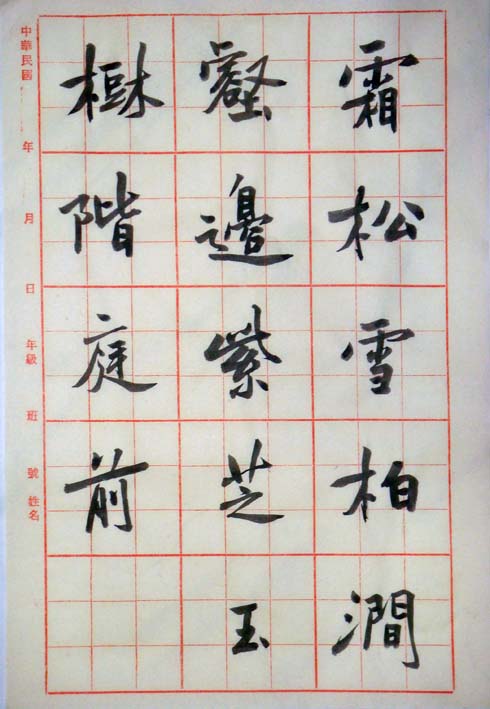 霜松雪柏澗
壑邊紫芝玉
樹階庭前
中華民國 年 月 日 年級 班 號 姓名